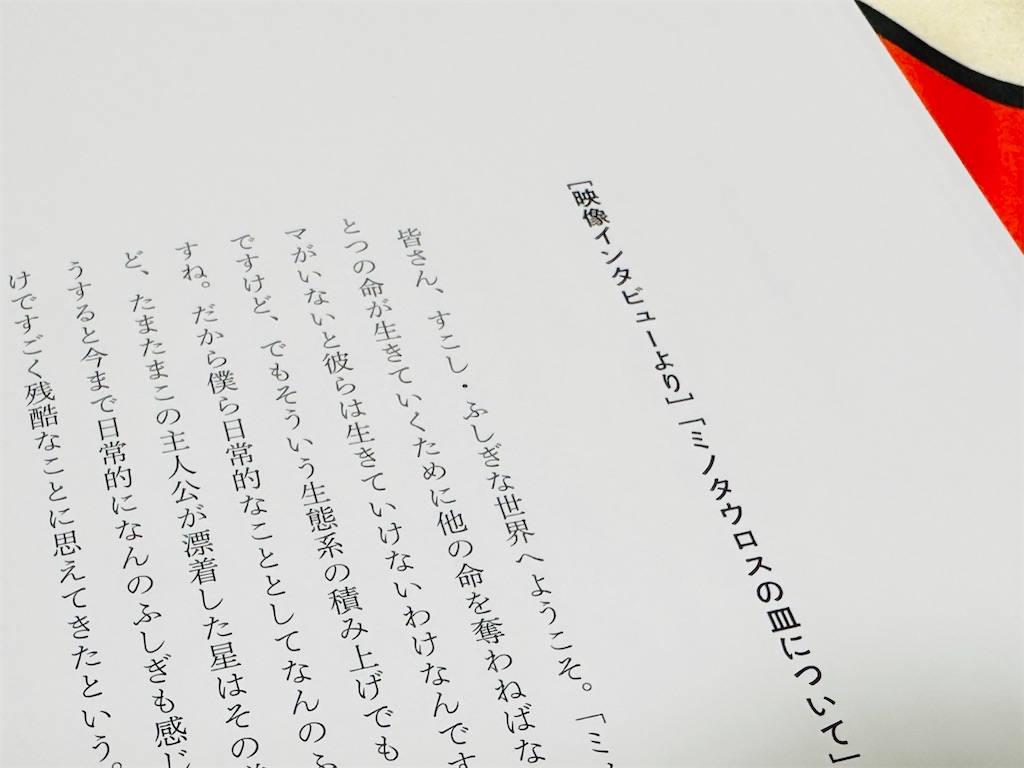 [映像インタビューより]「ミノタウロスの皿について」
皆さん、すこし・ふしぎな世界へようこそ。「ミノ
とつの命が生きていくために他の命を奪わねばな
マがいないと彼らは生きていけないわけなんです
ですけど、でもそういう生態系の積み上げでも
すね。だから僕ら日常的なこととしてなんのふ
ど、たまたまこの主人公が漂着した星はその
うすると今まで日常的になんのふしぎも感じ
けですごく残酷なことに思えてきたという。